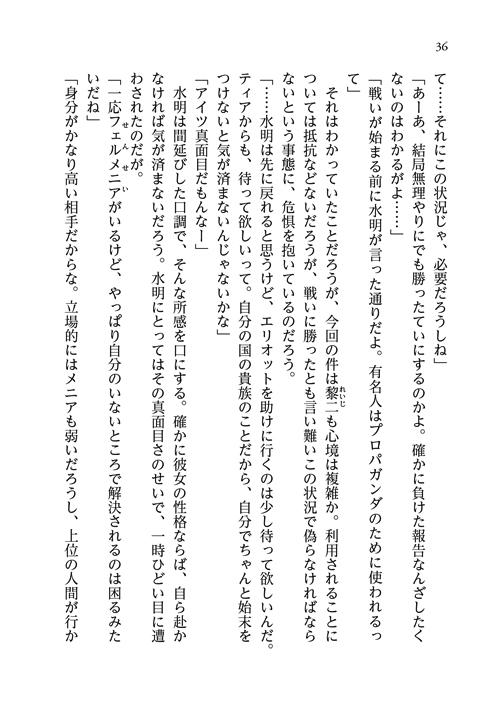 36
て……それにこの状況じゃ、必要だろうしね」
「あーあ、結局無理やりにでも勝ったていにするのかよ。確かに負けた報告なんざしたく
ないのはわかるがよ……」
「戦いが始まる前に水明が言った通りだよ。有名人はプロパガンダのために使われるっ
て」
それはわかっていたことだろうが、今回の件は黎二も心境は複雑か。利用されることに
れいじ
ついては抵抗などないだろうが、戦いに勝ったとも言い難いこの状況で偽らなければなら
ないという事態に、危惧を抱いているのだろう。
「……水明は先に戻れると思うけど、エリオットを助けに行くのは少し待って欲しいんだ。
ティアからも、待って欲しいって。自分の国の貴族のことだから、自分でちゃんと始末を
つけないと気が済まないんじゃないかな」
「アイツ真面目だもんなー」
水明は間延びした口調で、そんな所感を口にする。確かに彼女の性格ならば、自ら赴か
なければ気が済まないだろう。水明にとってはその真面目さのせいで、一時ひどい目に遭
わされたのだが。
「一応フェルメニアがいるけど、やっぱり自分のいないところで解決されるのは困るみた
せんせい
いだね」
「身分がかなり高い相手だからな。立場的にはメニアも弱いだろうし、上位の人間が行か